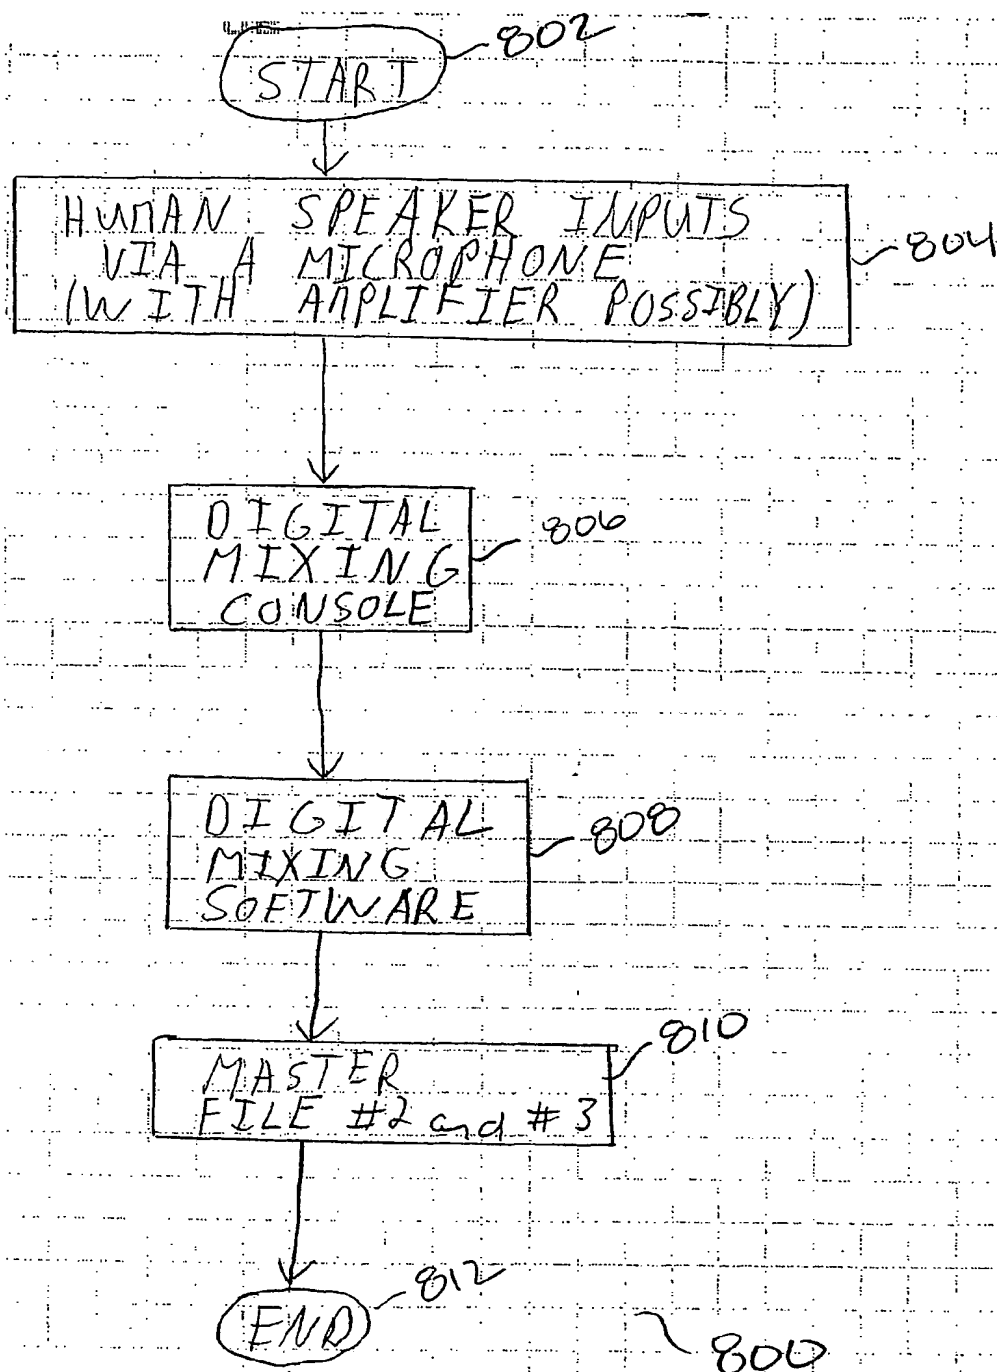 START
802
HUMAN SPEAKER INPUTS
VIA A MICROPHONE
(WITH AMPLIFIER POSSIBLY)
804
DIGITAL
MIXING
CONSOLE
806
DIGITAL
MIXING
SOFTWARE
808
MASTER
FILE #2 and #3
810
END
812
800